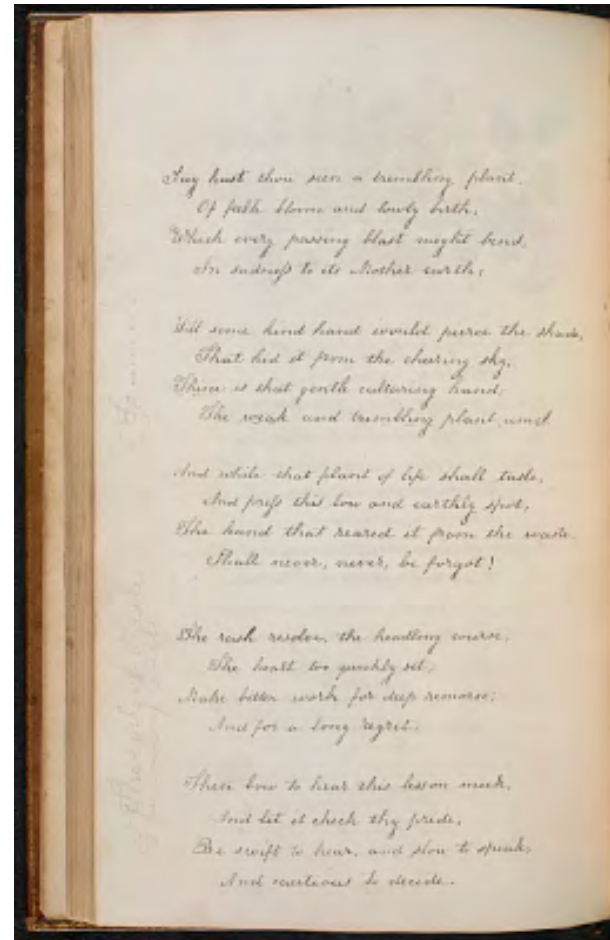 Say hast thou seen a trembling plant,
Of feeble bloom and lowly birth,
Which every passing blast might bend,
In sadness to its Mother earth;
Till some kind hand would pierce the shade,
That hid it from the cheering sky,
Thine is that gentle culturing hand,
The weak and trembling plant am I.
And while that plant of life shall taste,
And press this low and earthly spot,
The hand that reared it from the waste
Shall never, never, be forgot!
The rash resolve, the headlong course,
The heart too quickly set,
Make bitter work for deep remorse;
And for a long regret.
Then bow to hear this lesson meek,
And let it check thy pride,
Be swift to hear, and slow to speak,
And cautious to decide.